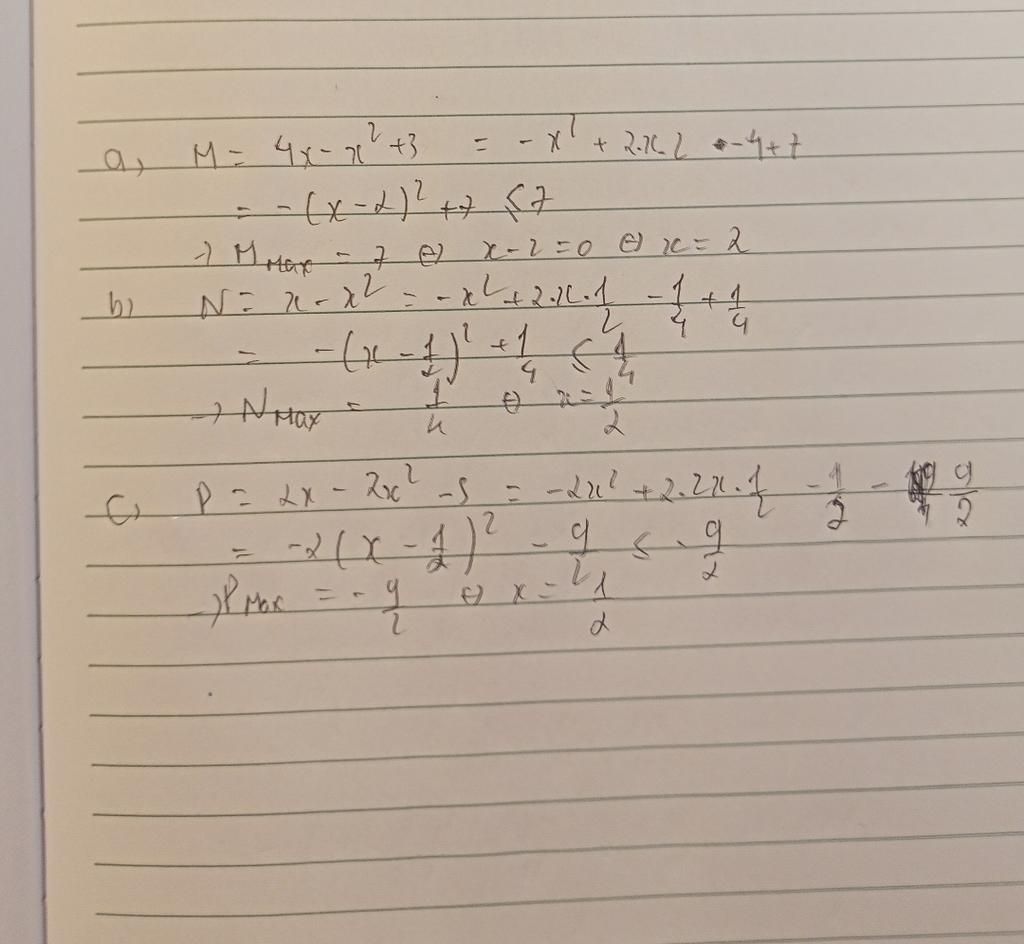 a, M = 4x - x² + 3 = -x² + 2.x.2 - 4 + 7
= -(x - 2)² + 7 ≤ 7
→ M Max = 7 ⇔ x - 2 = 0 ⇔ x = 2
b, N = x - x² = -x² + 2.x.1/2 - 1/4 + 1/4
= -(x - 1/2)² + 1/4 ≤ 1/4
→ N Max = 1/4 ⇔ x = 1/2
c, P = 2x - 2x² - 5 = -2x² + 2.2x.1/2 - 1/2 - 9/2
= -2(x - 1/2)² - 9/2 ≤ -9/2
→ P Max = -9/2 ⇔ x = 1/2